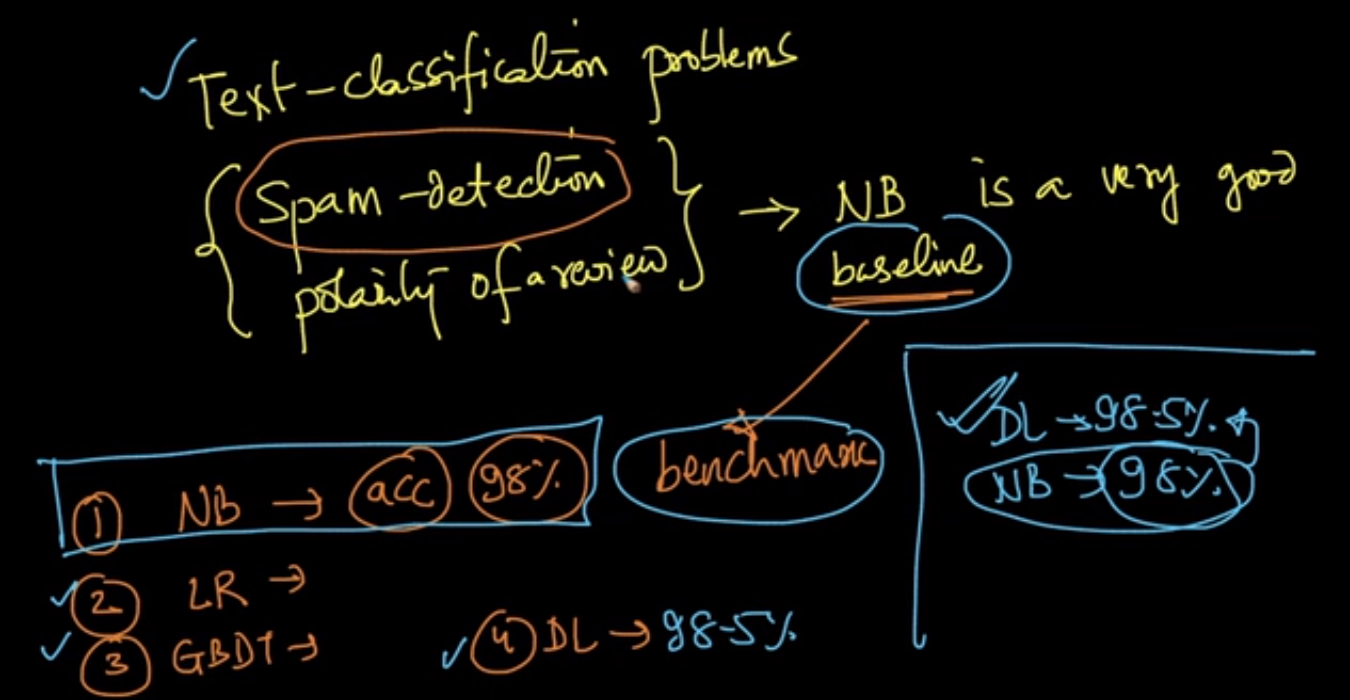 Text-classification problems
Spam-detection
polarity of a review
→ NB is a very good
baseline
benchmark
1 NB → acc 98%
2 LR →
3 GBDT →
4 DL → 98.5%
DL → 98.5%
NB → 98%